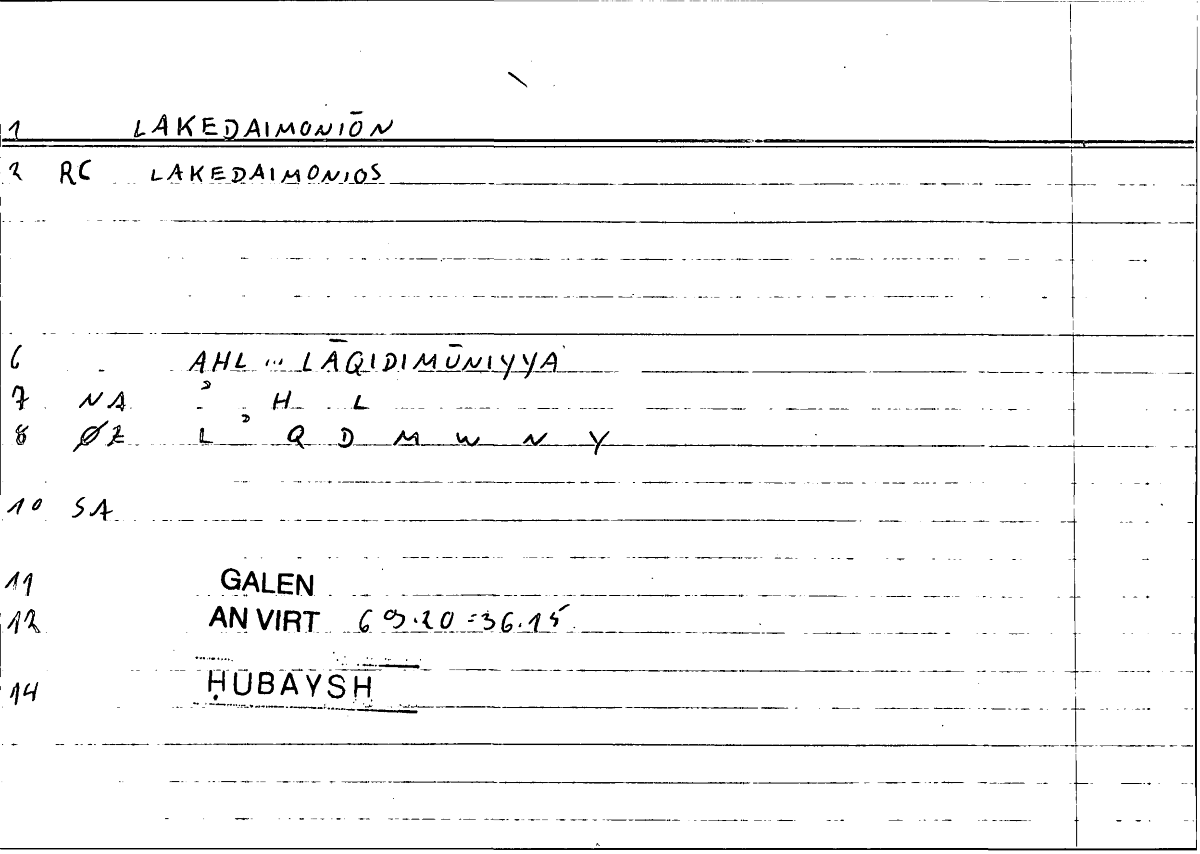 1 LAKEDAIMONIŌN
2 RC LAKEDAIMONIOS
6 AHL ... LĀQIDIMŪNIYYA
7 NA ʾ H L
8 ØZ L ʾ Q D M W N Y
10 SA
11 GALEN
12 AN VIRT 69.20=36.15
14 ḤUBAYSH